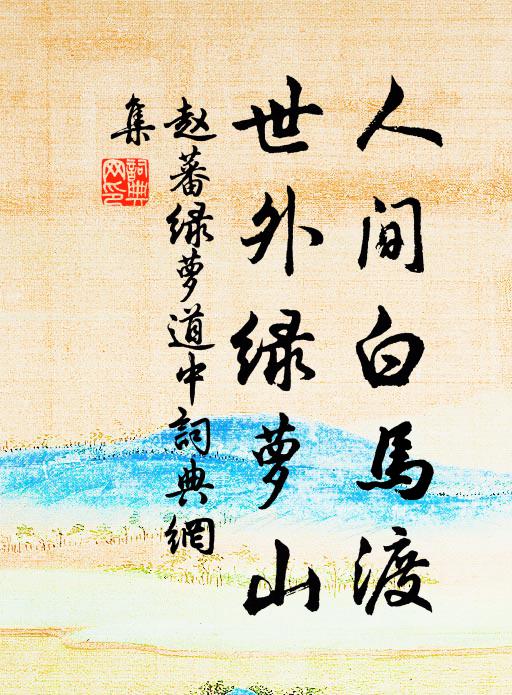 人间白馬渡
世外绿萝山
赵蕃绿萝道中詞典網
集
詞典
网印